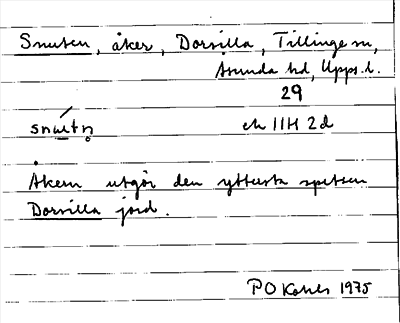 Snuten, åker, Dorsilla, Tillinge sn,
Åsunda hd, Upps. l.
29
snutn̥ ek 11H 2d
Åkern utgör den yttersta spetsen
Dorsilla jord.
P O 1975